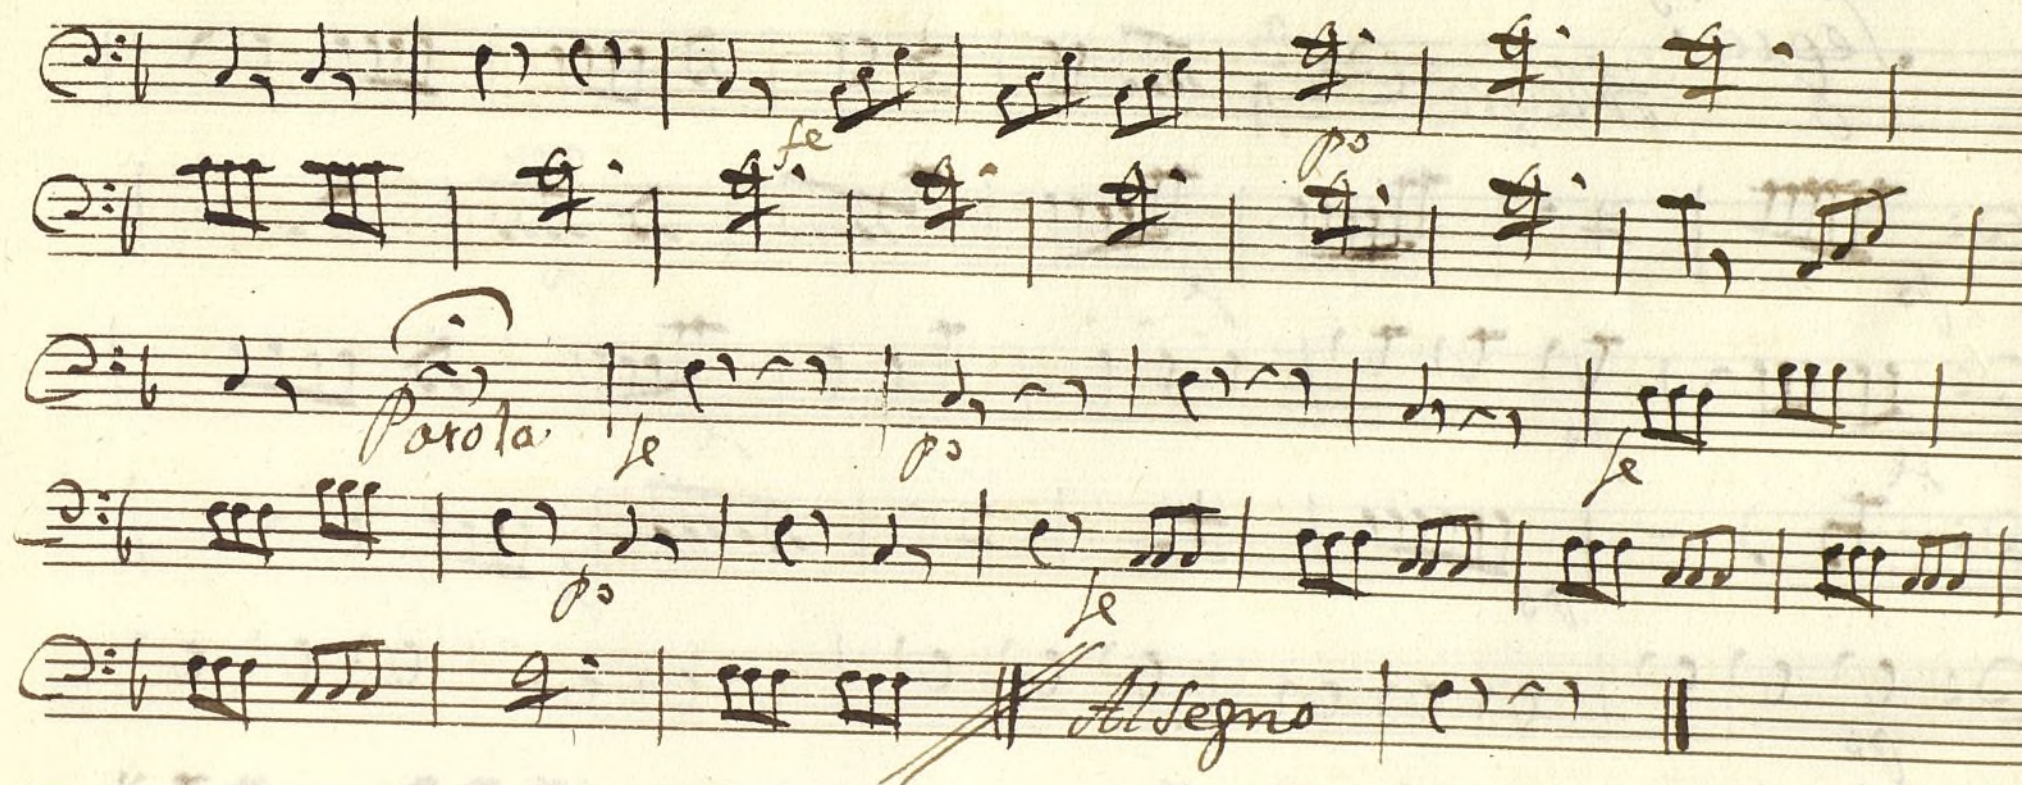 fe po
Parola fe po fe
po fe
Al Segno